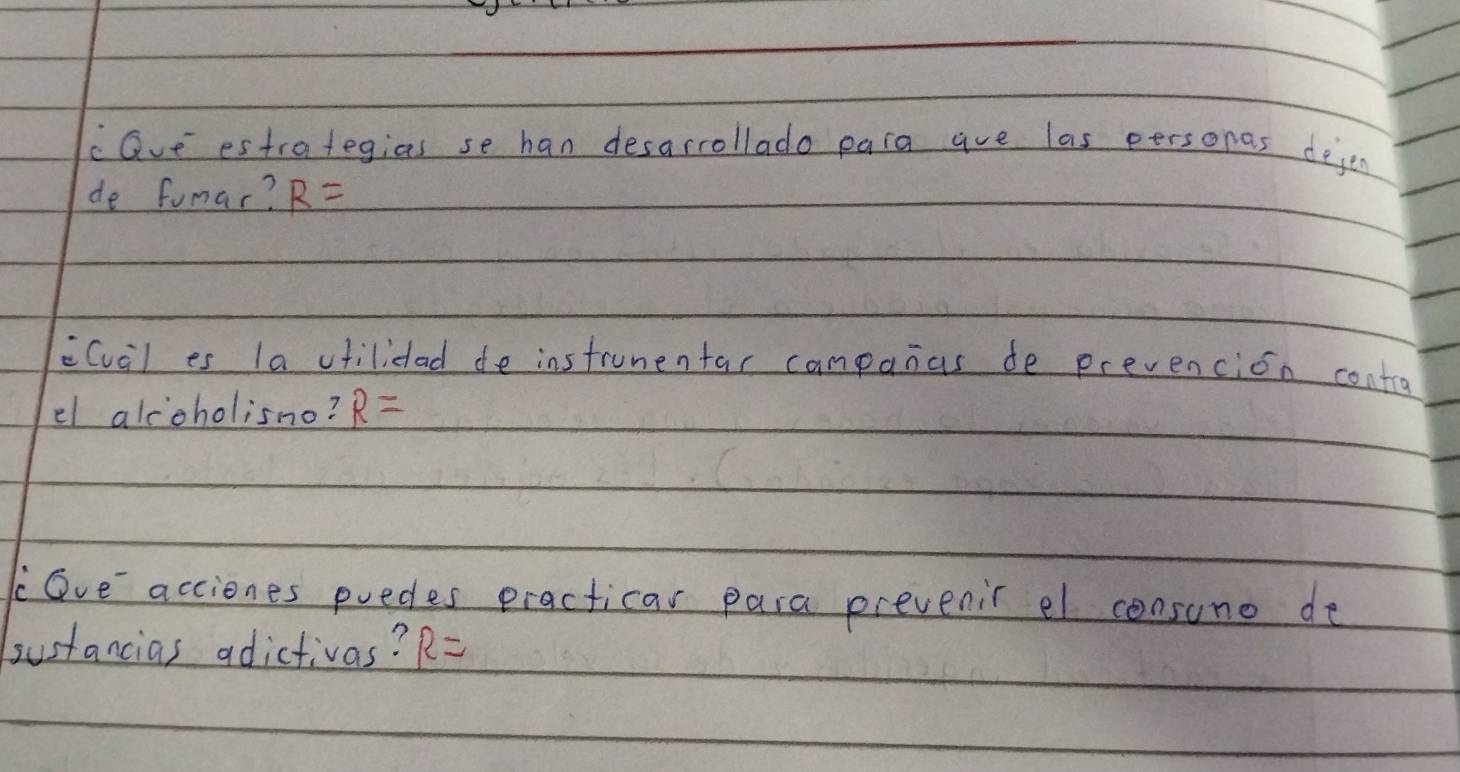 ¿Qué estrategias se han desarrollado para que las personas dejen
de fumar? R=
¿Cuál es la utilidad de instrumentar campañas de prevención contra
el alcoholismo? R=
¿Qué acciones puedes practicar para prevenir el consumo de
sustancias adictivas? R=